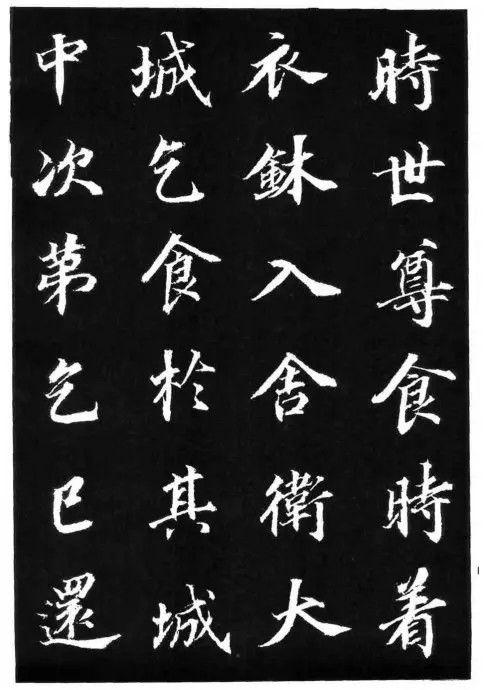 時世尊食時着
衣鉢入舍衛大
城乞食於其城
中次第乞已還